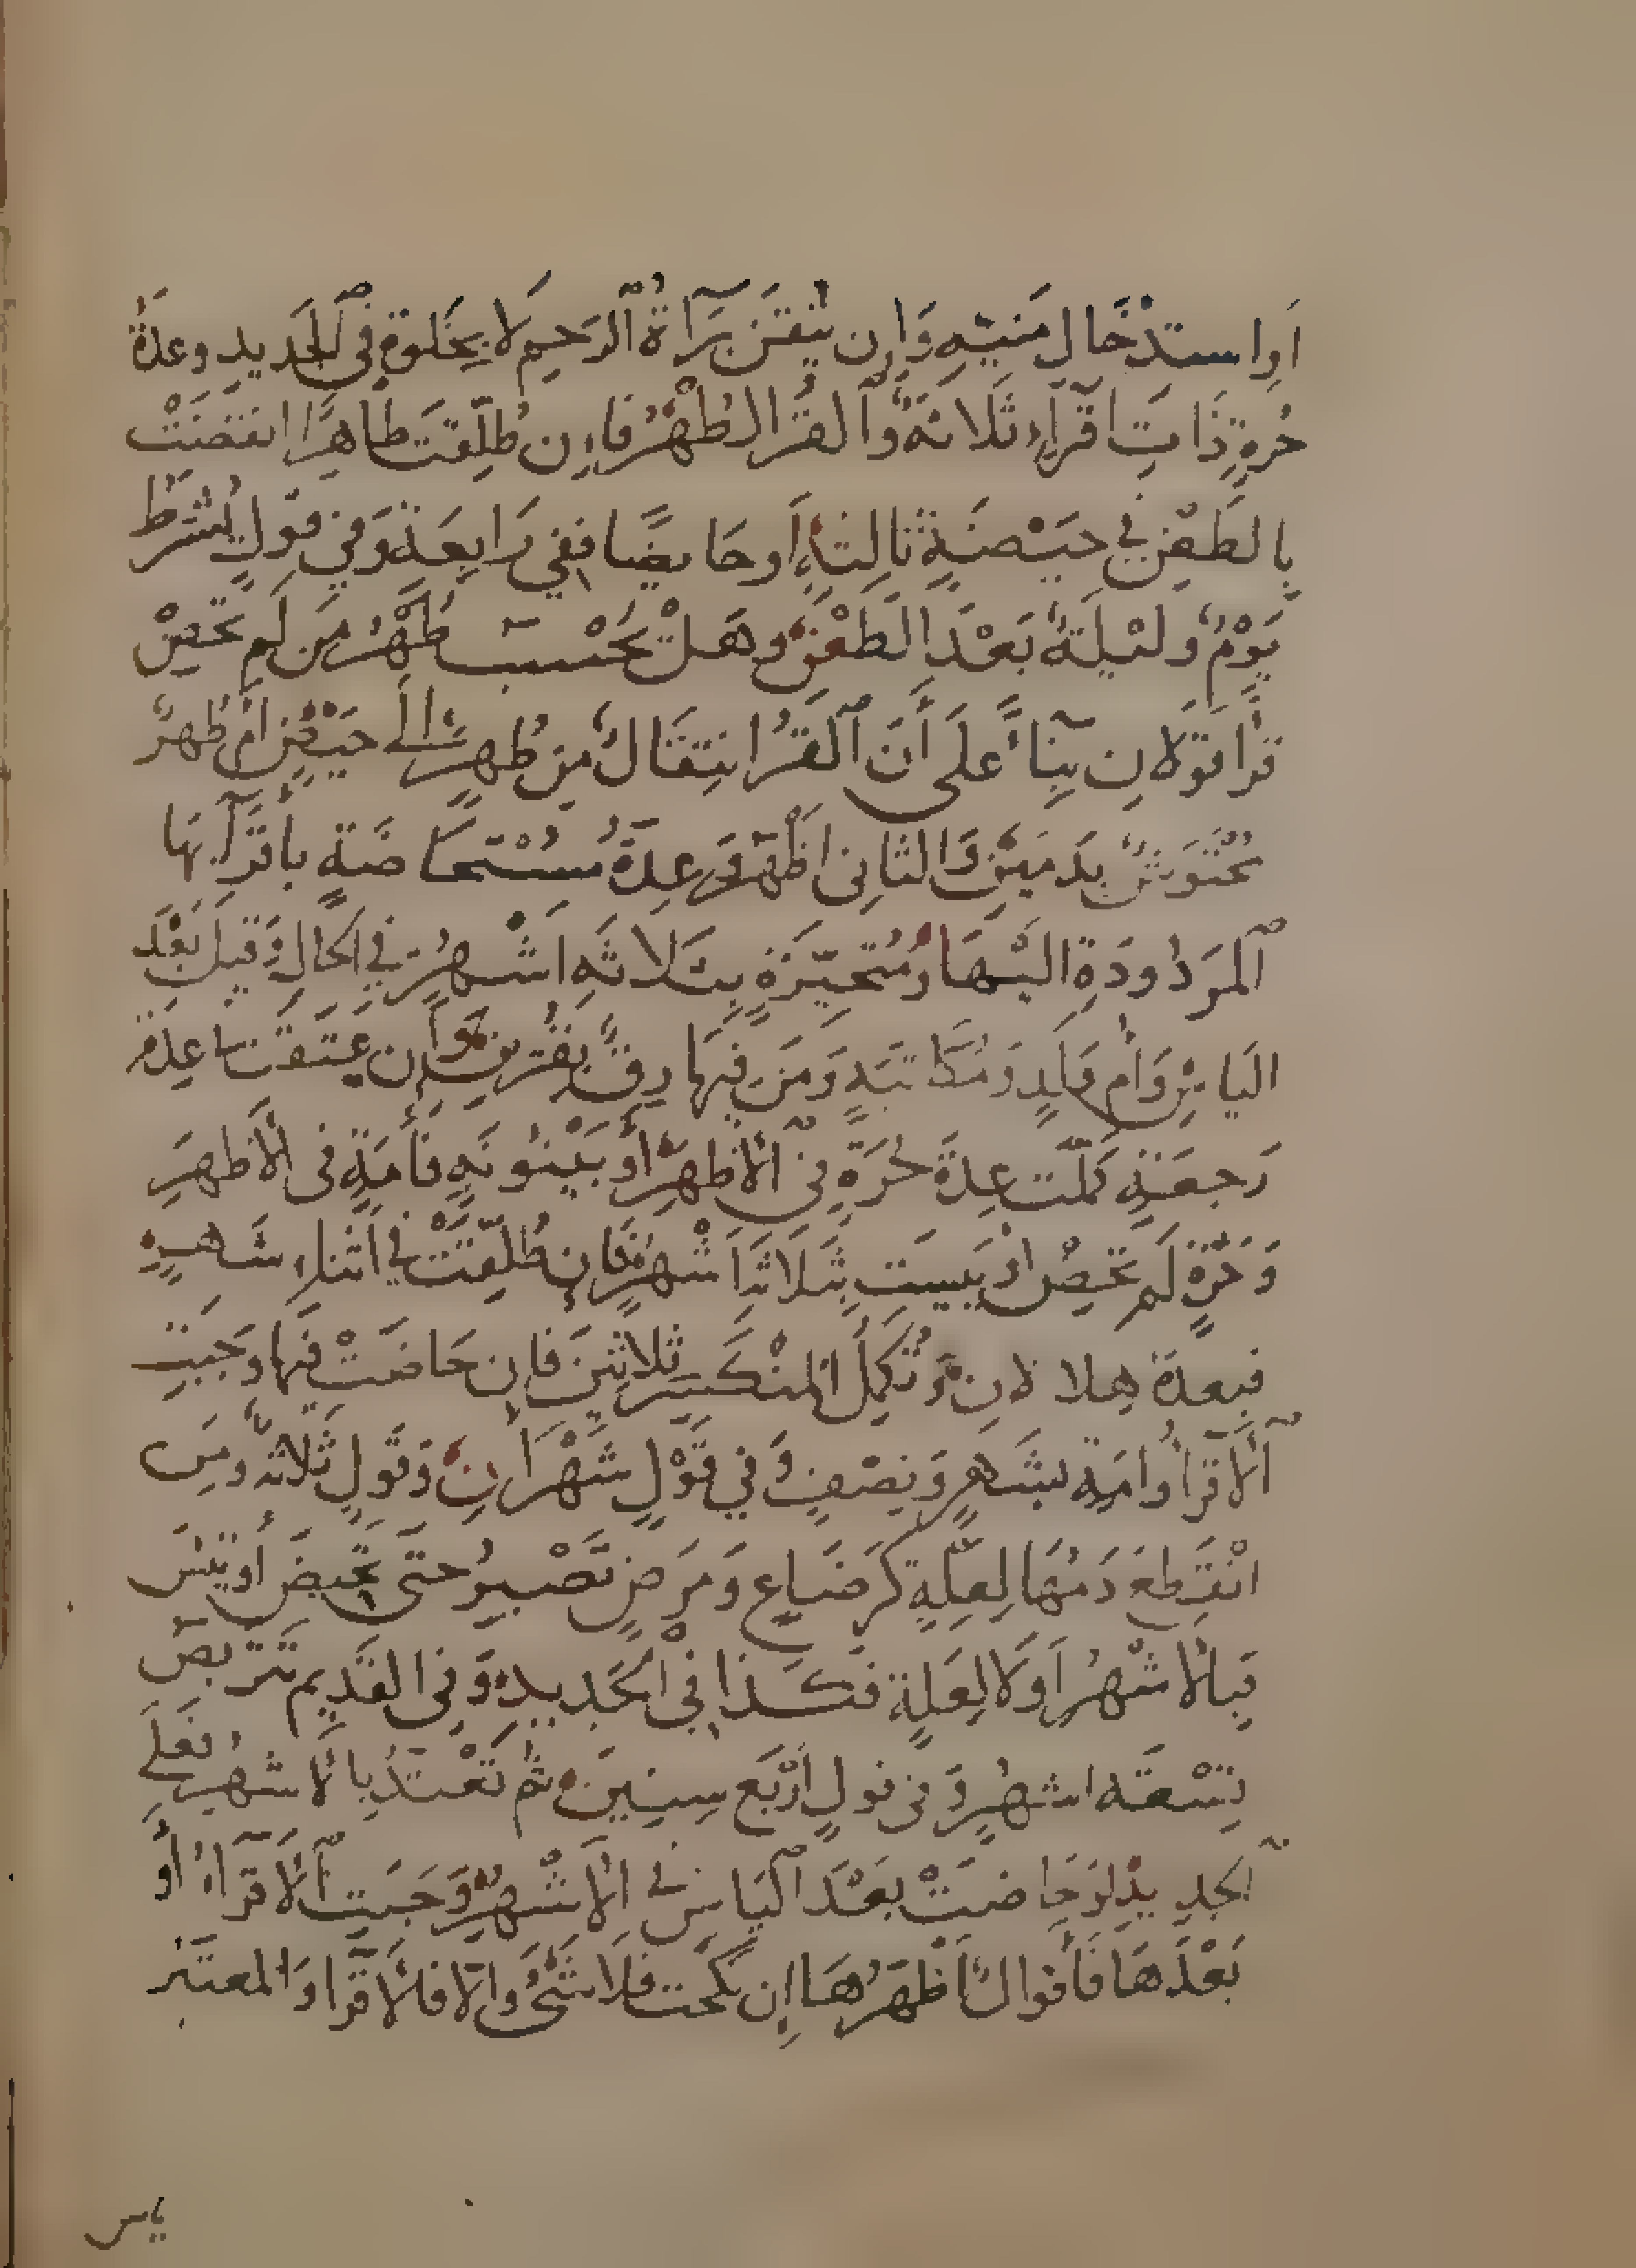 أو استدخال منيه وإن تيقن براة الرحم لا بخلوة في الجديد وعدة
حرة ذات أقراء ثلاثة والقرا الطهر فإن طلقت طاهرا انقضت
بالطعن في حيضة ثالثة أو حايضا ففي رابعة وفي قول يشترط
يوم وليلة بعد الطعن وهل يحسب طهر من لم تحض
قرا قولان بناء على أن القرا انتقال من طهر إلى حيض أم طهر
محتوش بدمين والثاني أظهر وعدة مستحاضة بأقرآيها
المردودة إليها ومتحيرة بثلاثة أشهر في الحال وقيل بعد
الياس وأم ولد ومكاتبة ومن فيها رق بقرين وإن عتقت في عدة
رجعية كملت عدة حرة في الأظهر أو بينونة فأمة في الأظهر
وحرة لم تحض أو ييست بثلاثة أشهر فإن طلقت في أثناء شهر
فبعده هلالان وتكمل المنكسر ثلاثين فإن حاضت فيها وجبت
الأقرا وأمة بشهر ونصف وفي قول شهران وقول ثلاثة ومن
انقطع دمها لعلة كرضاع ومرض تصبر حتى تحيض أو تيئس
فبالأشهر أو لا لعلة فكذا في الجديد وفي القديم تتربص
تسعة أشهر وفي قول أربع سنين ثم تعتد بالأشهر فعلى
الجديد لو حاضت بعد الياس في الأشهر وجبت الأقراء أو
بعدها فأقوال أظهرها إن نكحت فلا شيء وإلا فالأقرا والمعتبر
ياس